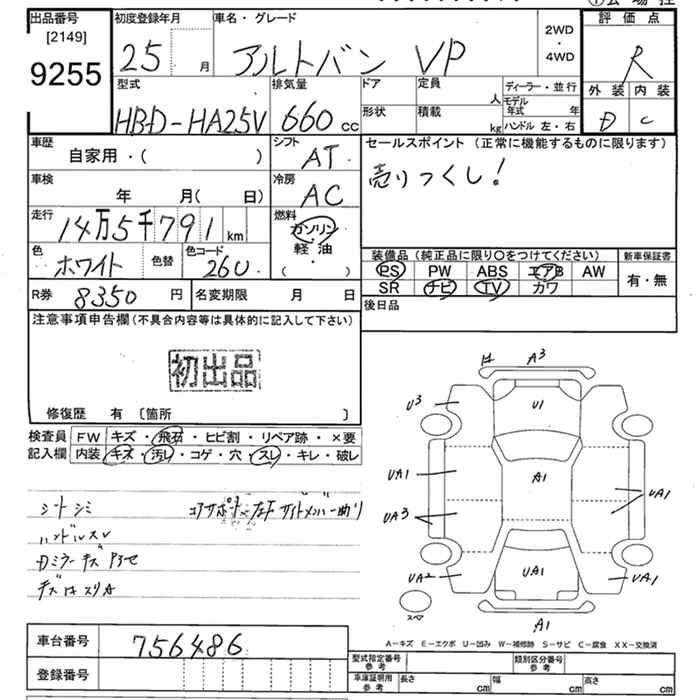 出品番号
[2149]
9255
初度登録年月
25 月
車名・グレード
アルトバン VP
2WD
・
4WD
評価点
R
外装 内装
D C
型式
HBD-HA25V
排気量
660 cc
ドア
形状
定員
人
積載
kg
ディーラー・並行
モデル年式 年
ハンドル 左・右
車歴
自家用・( )
シフト
AT
車検
年 月( 日)
冷房
AC
走行
14万5千791 km
燃料
ガソリン
軽油
( ・ )
色
ホワイト
色替
色コード
26U
R券 8350 円
名変期限 月 日
セールスポイント (正常に機能するものに限ります)
売りつくし!
装備品(純正品に限り〇をつけてください)
PS PW ABS エアB AW
SR ナビ TV カワ
新車保証書
有・無
後日品
注意事項申告欄(不具合内容等は具体的に記入して下さい)
初出品
修復歴 有 〔箇所 〕
検査員記入欄
FW キズ・飛石・ヒビ割・リペア跡・×要
内装 キズ・汚レ・コゲ・穴・スレ・キレ・破レ
シトシミ
コアサポート左下サイドメンバー曲り
ハンドルスレ
A3
U3
U1
UA1
A1
UA1
UA3
UA2
UA1
UA1
スペア
A1
A-キズ E-エクボ U-凹み W-補修跡 S-サビ C-腐食 XX-交換済
車台番号
756486
登録番号
型式指定番号
参考
類別区分番号
参考
車庫証明用
参考
長さ cm
幅 cm
高さ cm